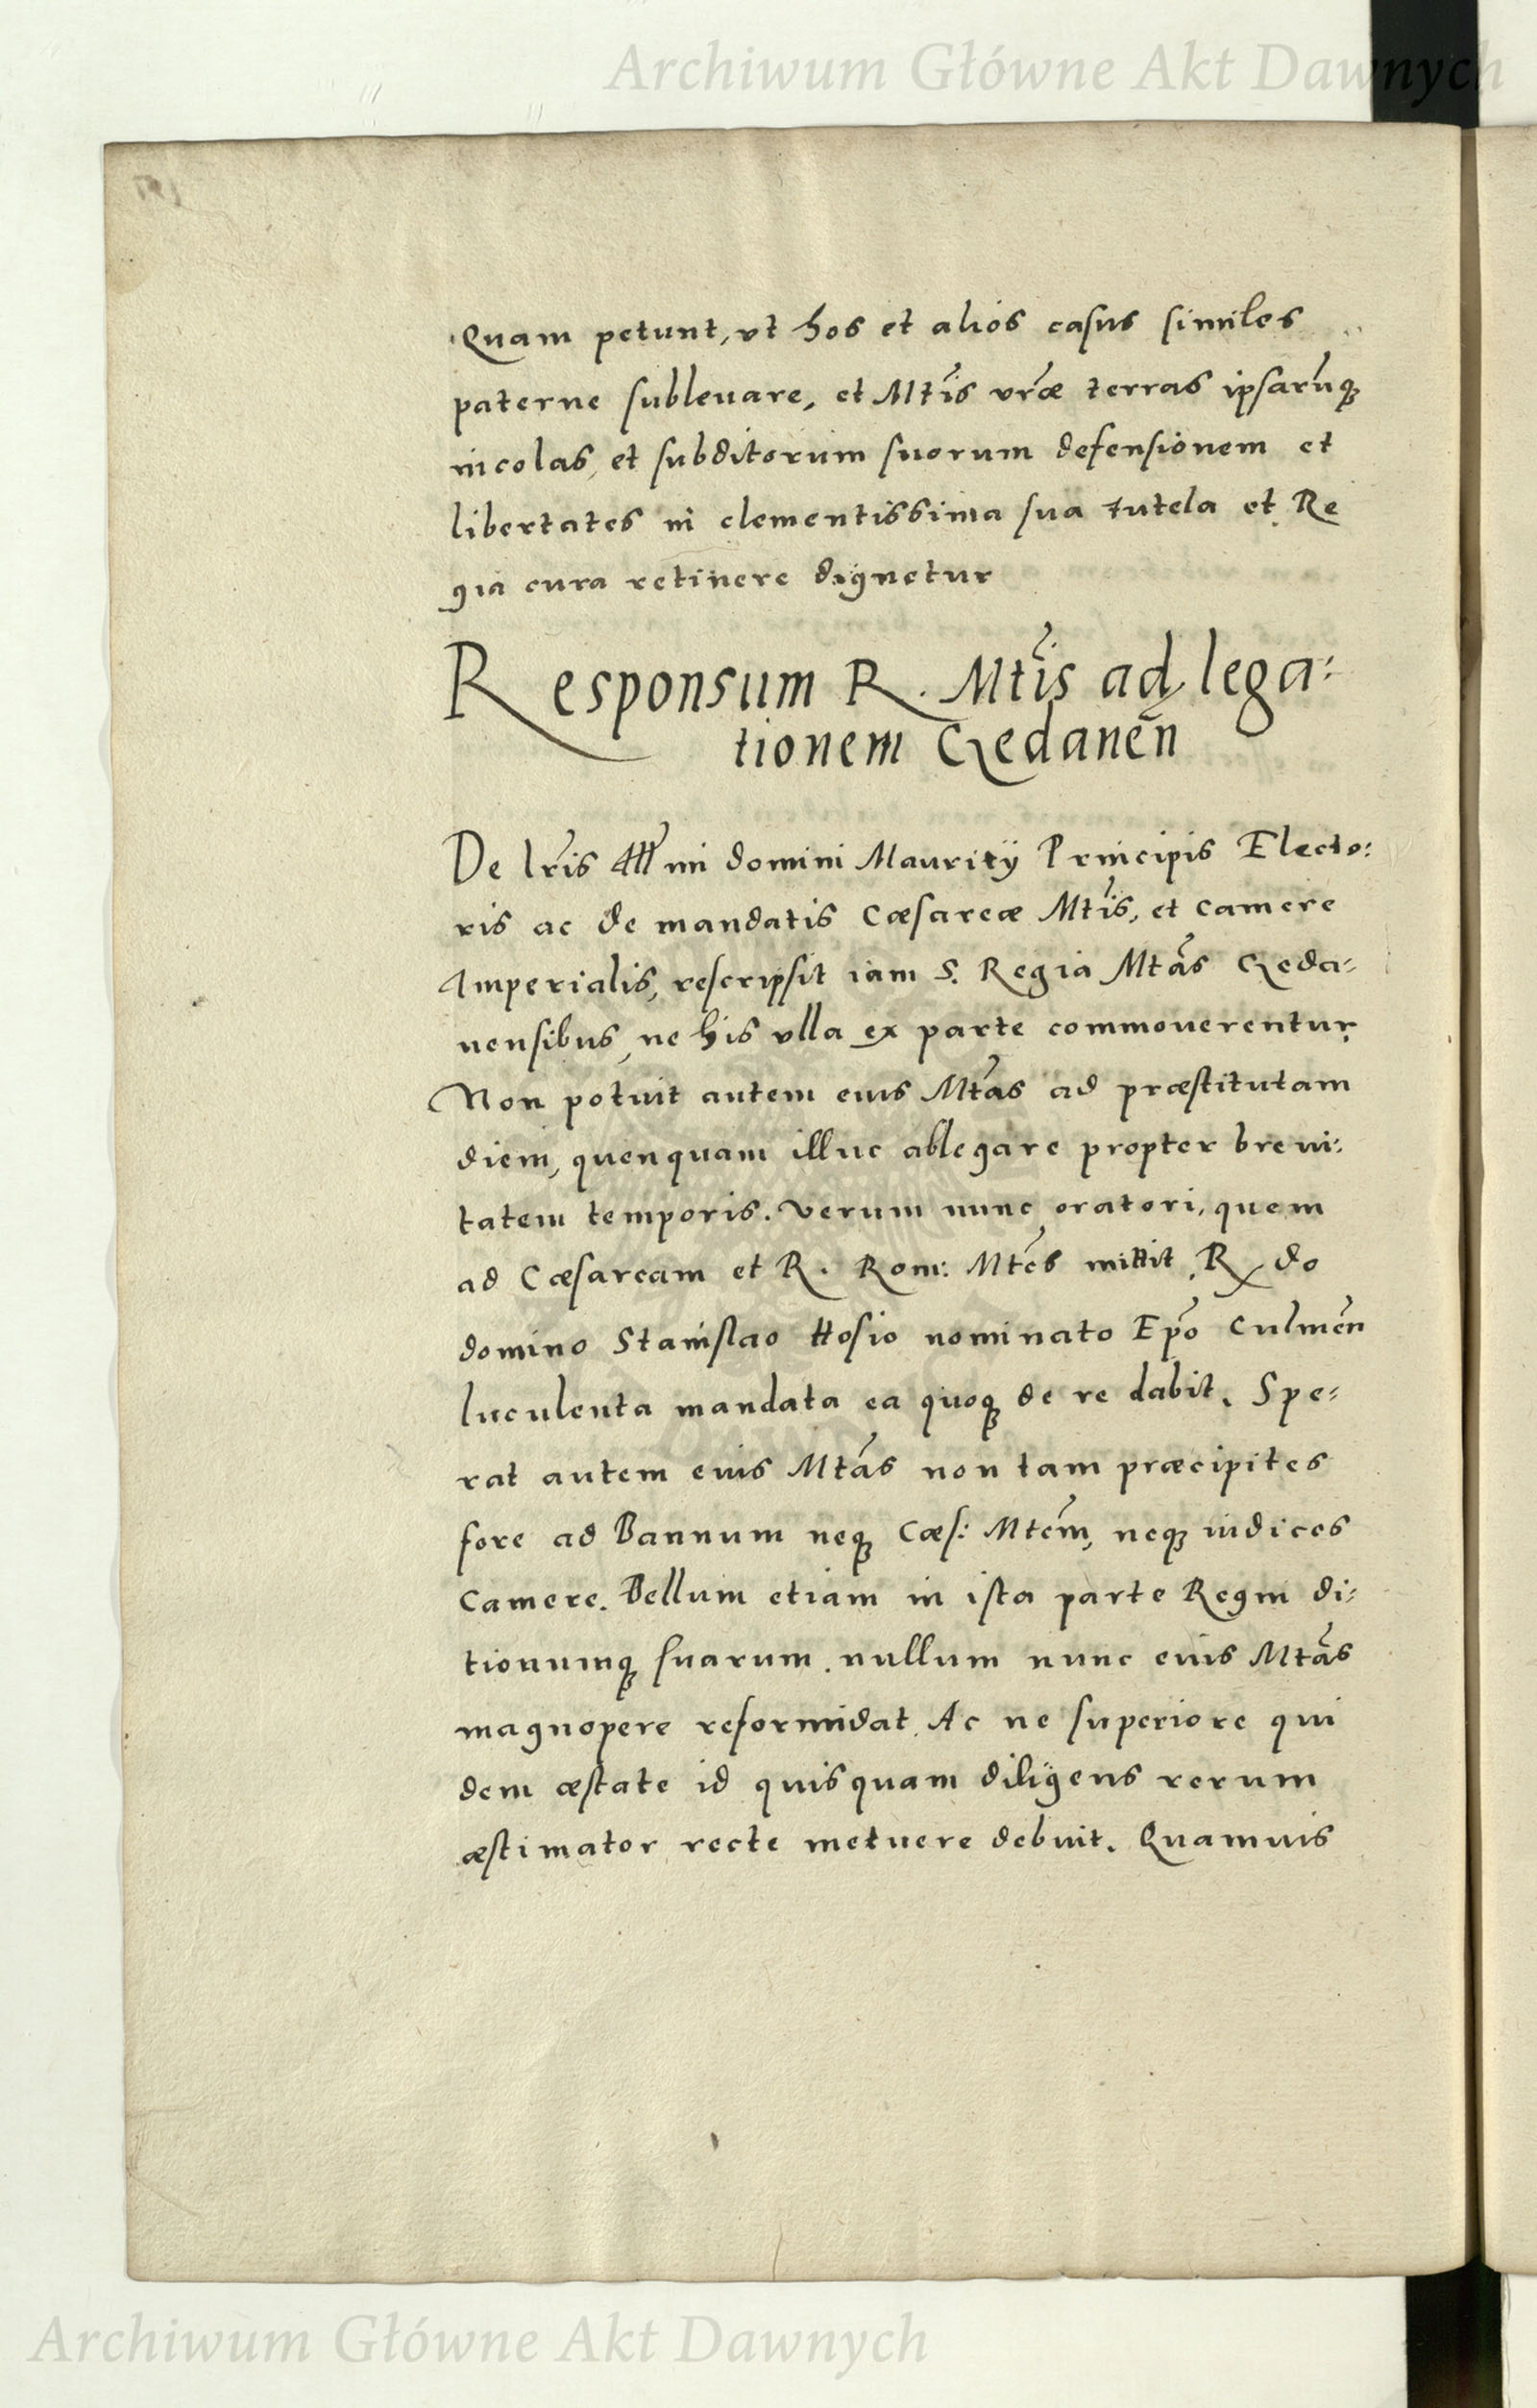 Archiwum Główne Akt Dawnych
Quam petunt, vt hos et alios casus similes
paterne subleuare, et Mtis vræ terras ipsarumq
incolas, et subditorum suorum defensionem et
libertates in clementissima sua tutela et Re
gia cura retinere dignetur
Responsum R. Mtis ad lega:
tionem Gedanen
De lris Illmi domini Mauritij Principis Electo:
ris ac de mandatis Cæsareæ Mtis, et camere
Imperialis, rescripsit iam S. Regia Mtas Geda-
nensibus, ne his vlla ex parte commouerentur.
Non potuit autem eius Mtas ad præstitutam
diem, quenquam illuc ablegare propter breui:
tatem temporis. Verum nunc oratori, quem
ad Cæsaream et R. Rom: Mtes mittit, R do
domino Stanislao Hosio nominato Epo Culmen
luculenta mandata ea quoq de re dabit. Spe-
rat autem eius Mtas non tam præcipites
fore ad Bannum neq Cæs: Mtem, neq iudices
Camere. Bellum etiam in ista parte Regni di-
tionumq suarum. nullum nunc eius Mtas
magnopere reformidat. Ac ne superiore qui
dem æstate id quisquam diligens rerum
æstimator recte metuere debuit. Quamuis
Archiwum Główne Akt Dawnych